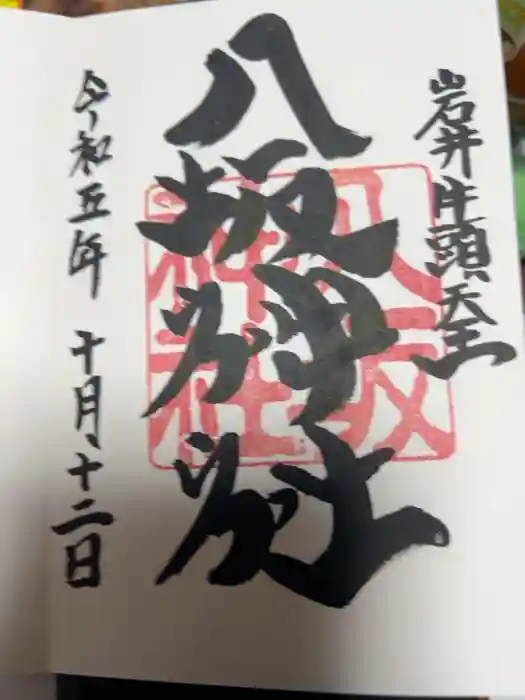 岩井牛頭天王
八坂神社
八坂神社
令和五年 十月十二日